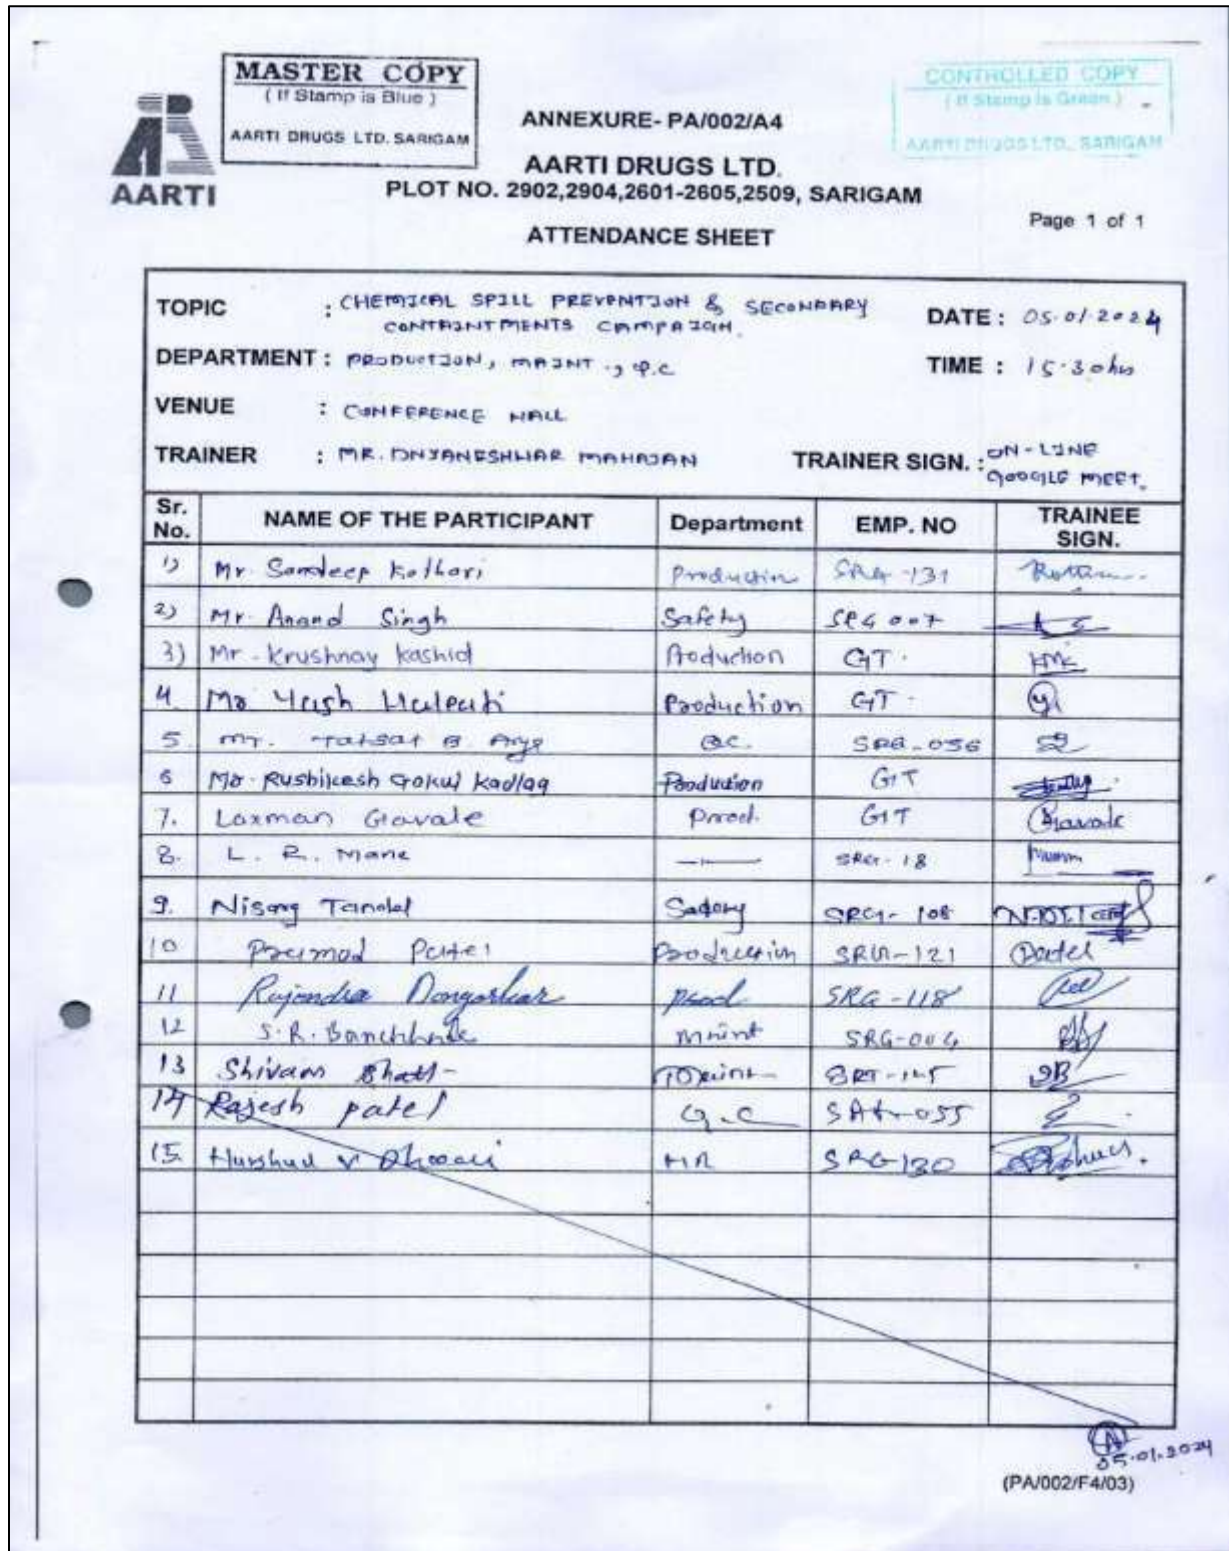 MASTER COPY
( If Stamp is Blue )
AARTI DRUGS LTD. SARIGAM
CONTROLLED COPY
( If Stamp is Green )
AARTI DRUGS LTD., SARIGAM
AARTI
ANNEXURE- PA/002/A4
AARTI DRUGS LTD.
PLOT NO. 2902,2904,2601-2605,2509, SARIGAM
Page 1 of 1
ATTENDANCE SHEET
TOPIC : CHEMICAL SPILL PREVENTION & SECONDARY
CONTAINTMENTS CAMPAIGN. DATE : 05.01.2024
DEPARTMENT : PRODUCTION, MAINT., Q.C TIME : 15.30 hrs
VENUE : CONFERENCE HALL
TRAINER : MR. DNYANESHWAR MAHAJAN TRAINER SIGN. : ON-LINE
GOOGLE MEET.
Sr. No. NAME OF THE PARTICIPANT Department EMP. NO TRAINEE SIGN.
1) Mr. Sandeep Kothari Production SRG-131
2) Mr. Anand Singh Safety SRG 007
3) Mr. Krushnay Kashid Production GT. KMK
4 Mr Yash Halpati Production GT.
5. Mr. Tatsat B. Arya Q.C. SRG-056
6 Mr. Rushikesh Gokul Kadlag Production GT
7. Laxman Gavale Prod. GT Gavale
8. L. R. Mane SRG-18
9. Nisarg Tandel SRG-108
10 Pramod Patel Production SRG-121 Patel
11 Rajendra Dongarkar Prod SRG-118
12 S.R. Maint SRG-004
13 Shivam Bhatt Maint SB
14 Rajesh patel Q.C
15. HR SRG-130
05.01.2024
(PA/002/F4/03)